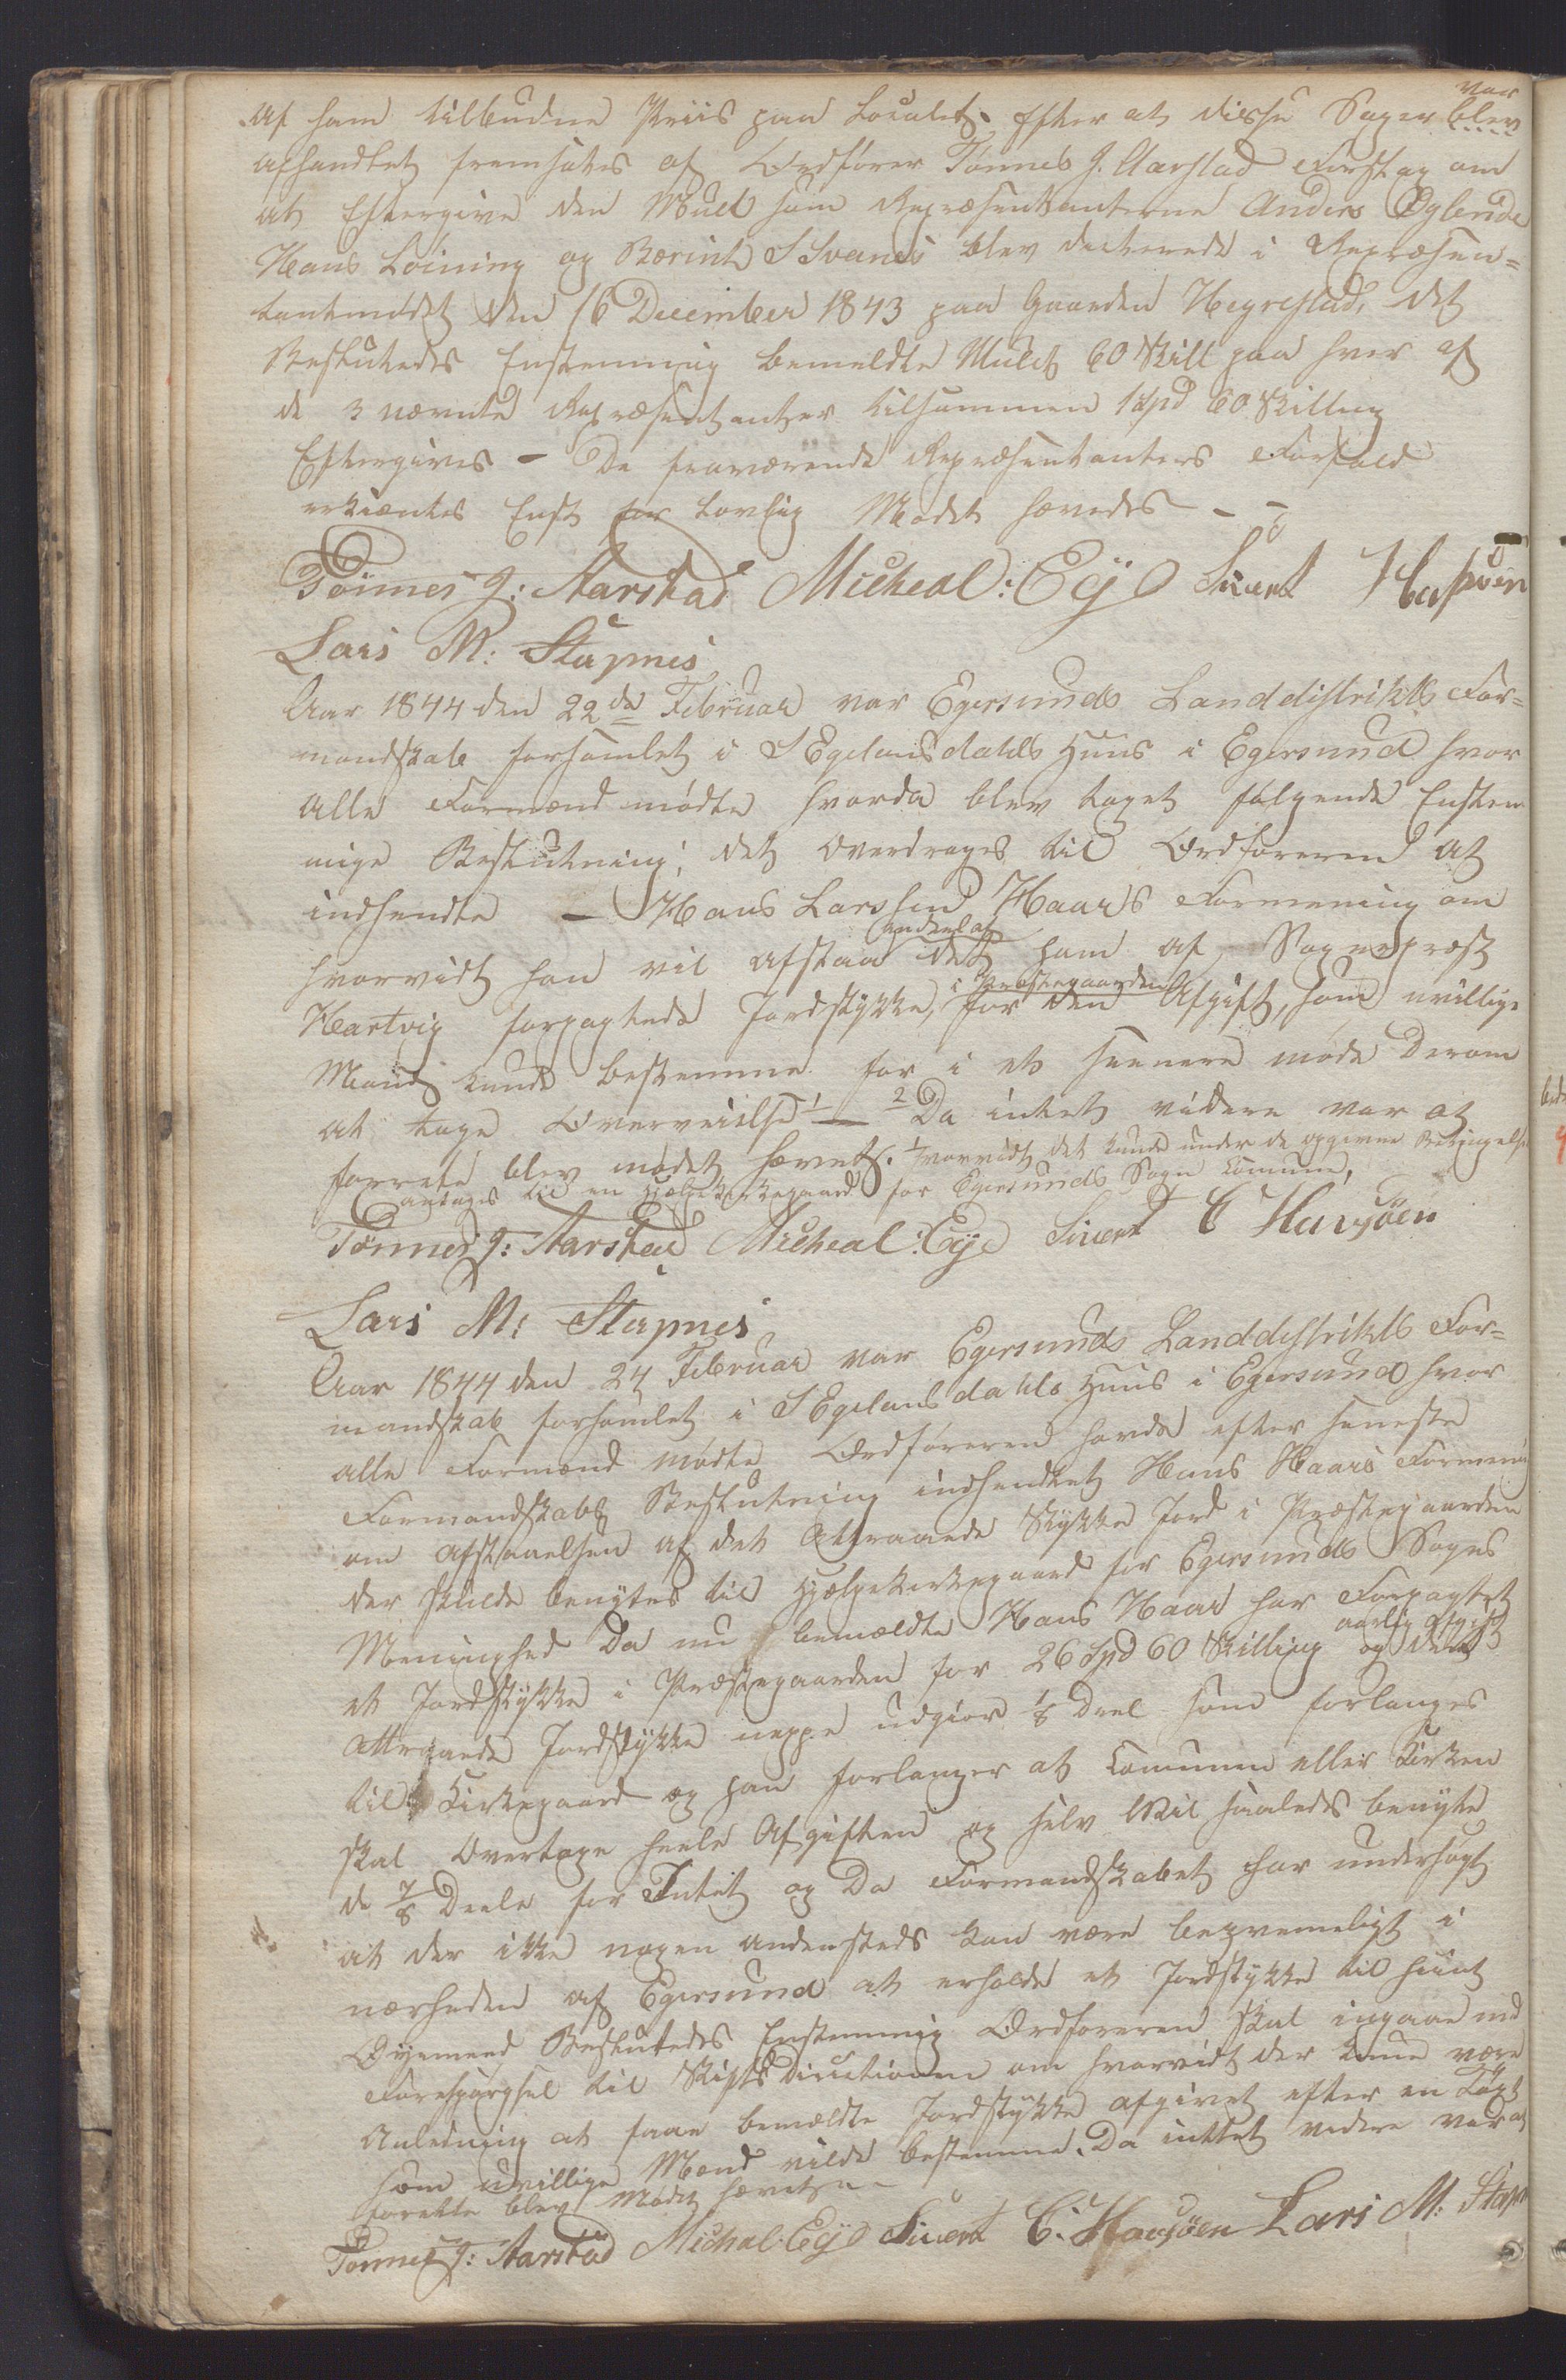 af ham tilbudne Priis paa Localet. Efter at disse Sager var blev
afhandlet fremsattes af Ordfører Tønnes J. Aarstad Forslag om
at Eftergive den Mult som Repræsentanterne Anders Øglende
Hans Leining og Berint S Svanes blev dicterede i Repræsen=
tantmødet den 16 December 1843 paa Gaarden Hegrestad, det
Besluttedes Enstemmig bemeldte Mulct 60 Skill paa hver af
de 3 nævnte Repræsentanter tilsammen 1 Spd 60 Skilling
Eftergives - De fraværende Repræsentanters Forfald
erkjentes Enst for Lovlig Mødet hævedes - -
Tönnes J: Aarstad Micheal: Eÿe Sivert Hafsöen
Lars M: Stapnes
Aar 1844 den 22de Februar var Egersunds Landdistrikts For=
mandskab forsamlet i S Egelandsdahls Huus i Egersund hvor
alle Formænd mødte hvorda blev taget følgende Enstem
mige Beslutning: det Overdrages til Ordføreren at
indhendte - Hans Larssen Haars Formening om
hvorvidt han vil afstaa andeel af det ham af Sognepræst
Hartvig forpagtede Jordstykke, i Præstegaarden for den Afgift, som uvillige
Mænd kunde bestemme for i et seenere møde derom
at tage Overveielse 1 - 2 Da intet videre var at
forrette blev mødet hævet. 1 hvorvidt det kunde under de opgivne Betingelse
antages til en Hjælpekirkegaard for Egersunds Sogns Comune,
Tönnes J: Aarstad Micheal: Eÿe Sivert C Havsöen
Lars M: Stapnes
Aar 1844 den 24 Februar var Egersunds Landdistrikts For=
mandskab forsamlet i S Egelandsdahls Huus i Egersund hvor
alle Formænd mødte Ordføreren havde efter seneste
Formandskabs Beslutning indhendtet Hans Haars Formening
om afstaaelsen af det Attraaede Stykke Jord i Præstegaarden
der skulde benyttes til Hjælpekirkegaard for Egersunds Sogns
Meninghed Da nu bemældte Hans Haar har Forpagtet
et Jordstykke i Præstegaarden for 26 Spd 60 Skilling aarlig Afgift og det
attraaede Jordstykke neppe udgior 1/8 Deel som forlanges
til Kirkegaard og han forlanger at Comunen eller Kirken
skal Overtage heele Afgiften og selv Vil saaledes benytte
de 7/8 Deele for Intet og Da Formandskabet har undersøgt
at der ikke nogen andensteds kan være beqvemeligt i
nærheden af Egersund at erholde et Jordstykke til hiint
Øyemeed Besluttedes Enstemmig Ordføreren skal ingaae med
Forespørgsel til Stiftsdirectionen om hvorvidt der kunne være
Anledning at faae bemældte Jordstykke afgivet efter en Taxt
som uvillige Mænd vilde bestemme. Da inttet videre var at
forette blev Mødet hævet -
Tönnes J: Aarstad Micheal: Eÿe Sivert C. Havsöen Lars M: Stapn